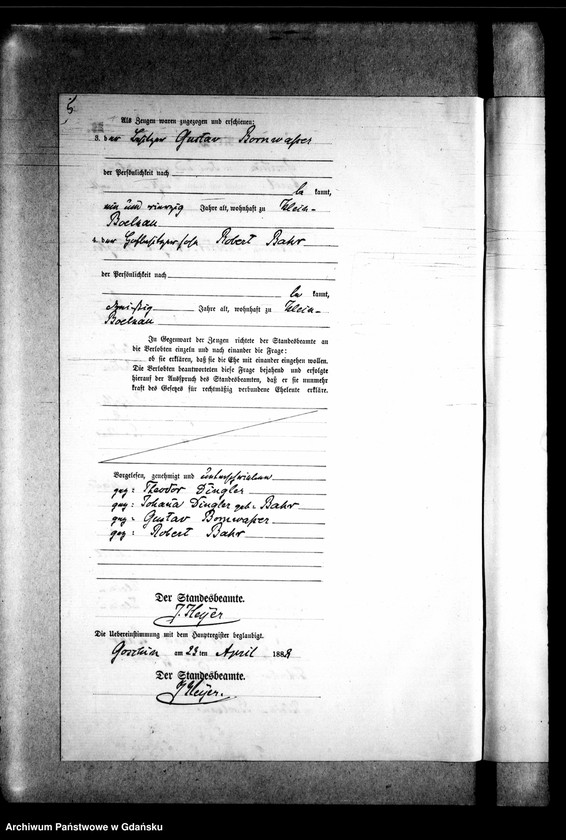 Als Zeugen waren zugezogen und erschienen:
3. der Besitzer Gustav Bornwasser
der Persönlichkeit nach
be kannt,
ein und vierzig Jahre alt, wohnhaft zu Klein-
Boelkau
4. der Hofbesitzersohn Robert Bahr
der Persönlichkeit nach
be kannt,
dreißig Jahre alt, wohnhaft zu Klein-
Boelkau
In Gegenwart der Zeugen richtete der Standesbeamte an
die Verlobten einzeln und nach einander die Frage:
ob sie erklären, daß sie die Ehe mit einander eingehen wollen.
Die Verlobten beantworteten diese Frage bejahend und erfolgte
hierauf der Ausspruch des Standesbeamten, daß er sie nunmehr
kraft des Gesetzes für rechtmäßig verbundene Eheleute erkläre.
Vorgelesen, genehmigt und unterschrieben
gez: Theodor Dingler
gez: Johana Dingler geb. Bahr
gez: Gustav Bornwasser
gez: Robert Bahr
Der Standesbeamte.
J. Heyer
Die Uebereinstimmung mit dem Hauptregister beglaubigt.
am 23 ten April 1888
Der Standesbeamte.
J Heyer.
Archiwum Państwowe w Gdańsku